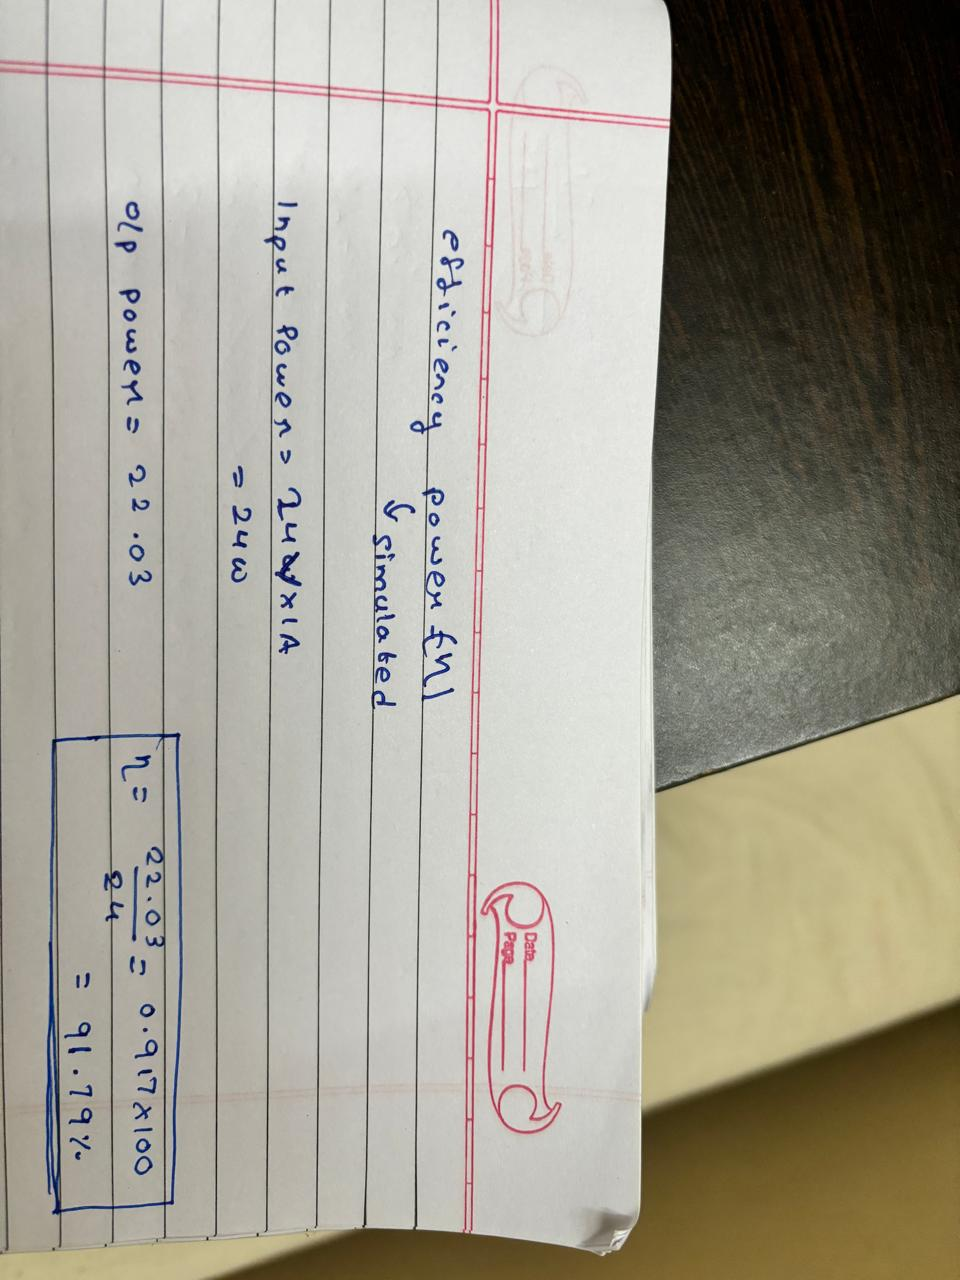 Date
Page
efficiency power (η)
↳ simulated
Input Power = 24V×1A
= 24W
O/P power = 22.03
η = 22.03/24 = 0.917×100
= 91.79%